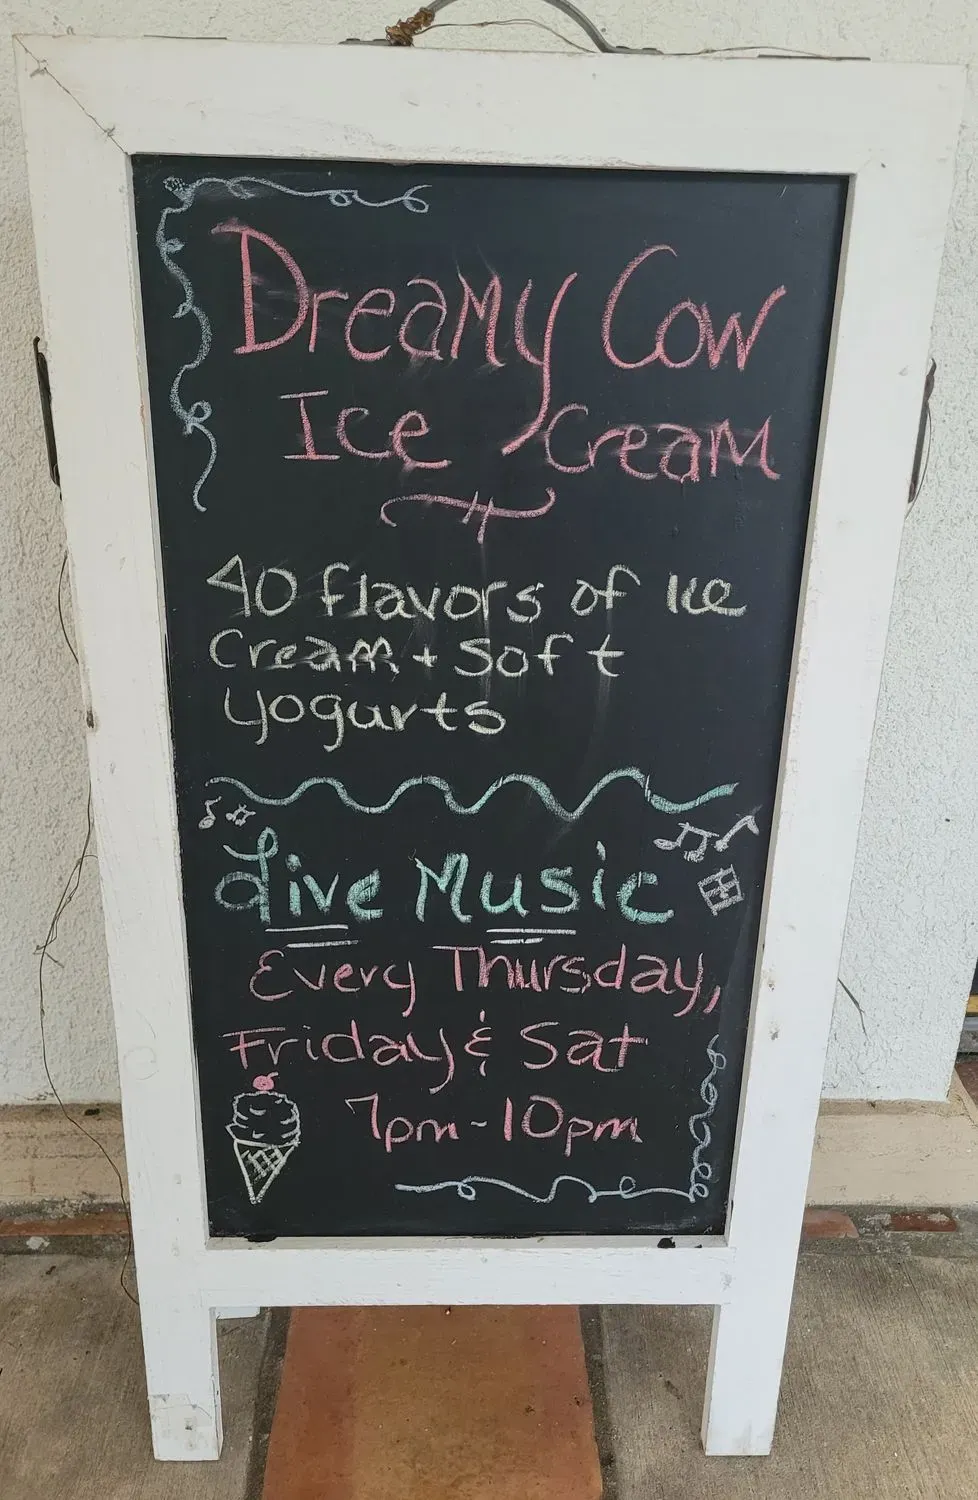 Dreamy Cow
Ice Cream
40 flavors of Ice
Cream + Soft
Yogurts
Live Music
Every Thursday,
Friday & Sat
7pm-10pm